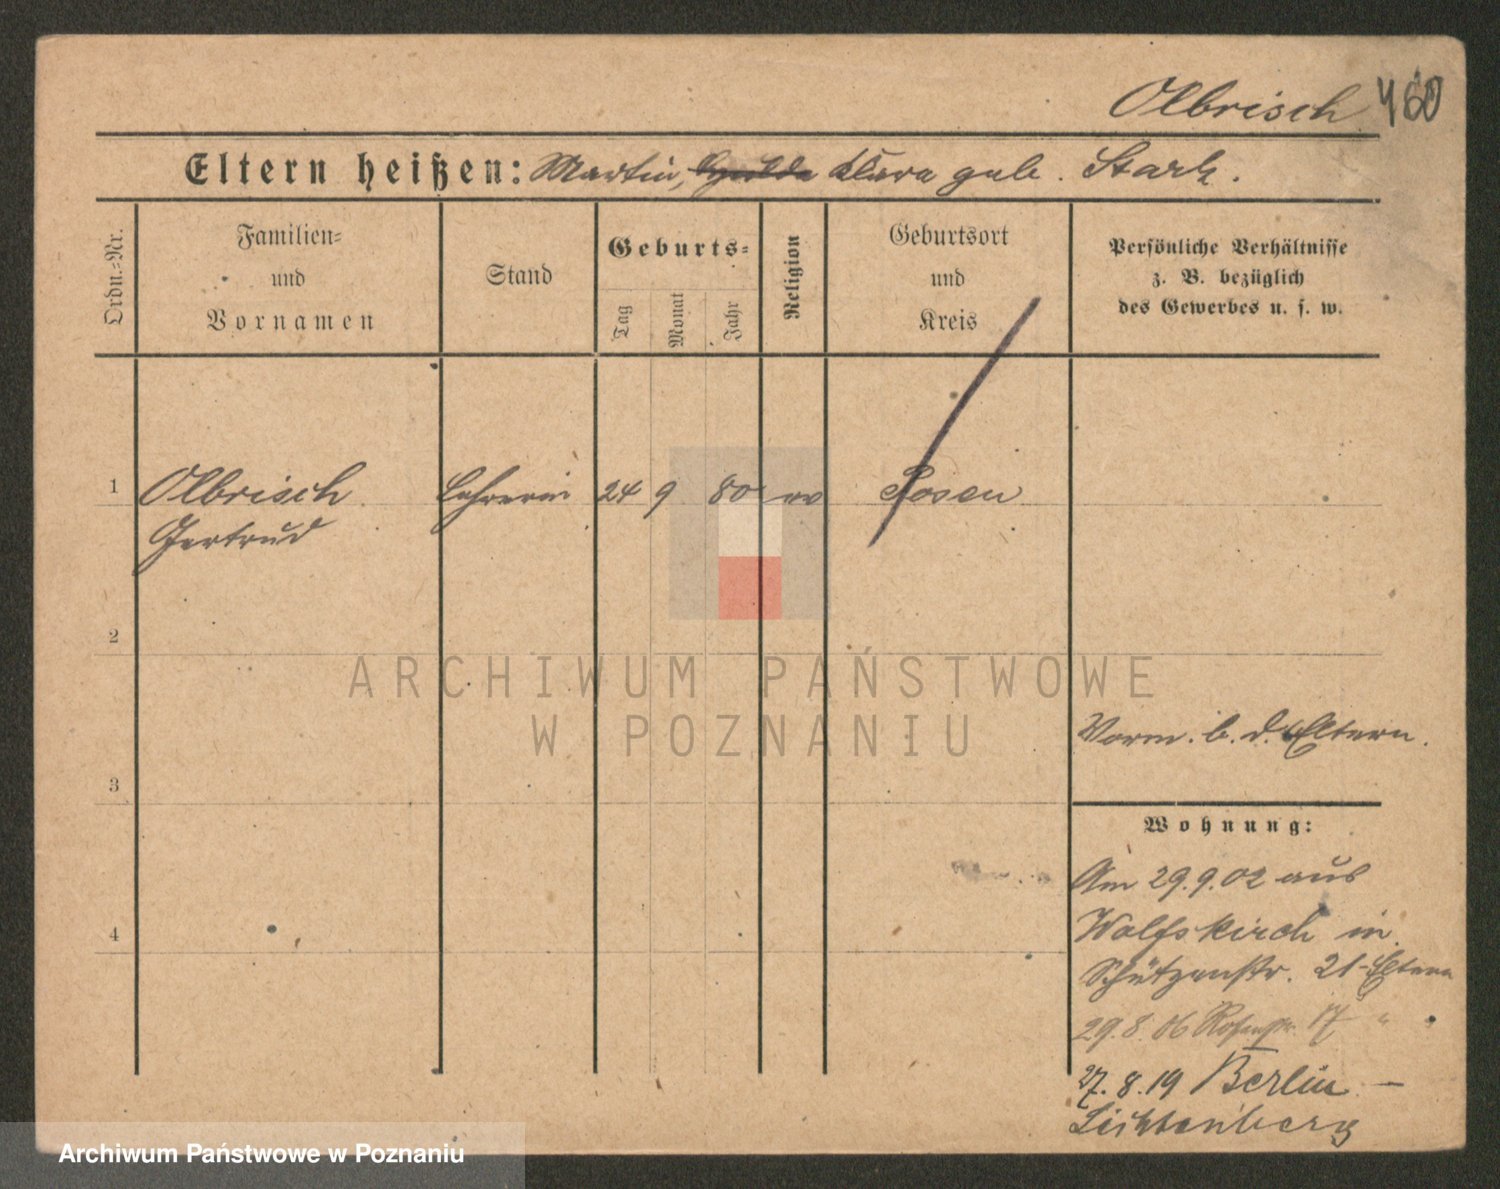 Olbrisch 460
Eltern heißen: Martin, Hulda Klara geb. Stark.
Ordn.-Nr.
Familien-
und
Vornamen
Stand
Geburts-
Tag
Monat
Jahr
Religion
Geburtsort
und
Kreis
Persönliche Verhältnisse
z. B. bezüglich
des Gewerbes u. s. w.
1 Olbrisch Lehrerin 24 9 80 ev Posen
Gertrud
2
3
4
Verm. b. d. Eltern.
Wohnung:
Am 29.9.02 aus
Wolfskirch in
Schützenstr. 21 - Eltern
29.8.06 17 " "
27.8.19 Berlin -
Lichtenberg
ARCHIWUM PAŃSTWOWE
W POZNANIU
Archiwum Państwowe w Poznaniu